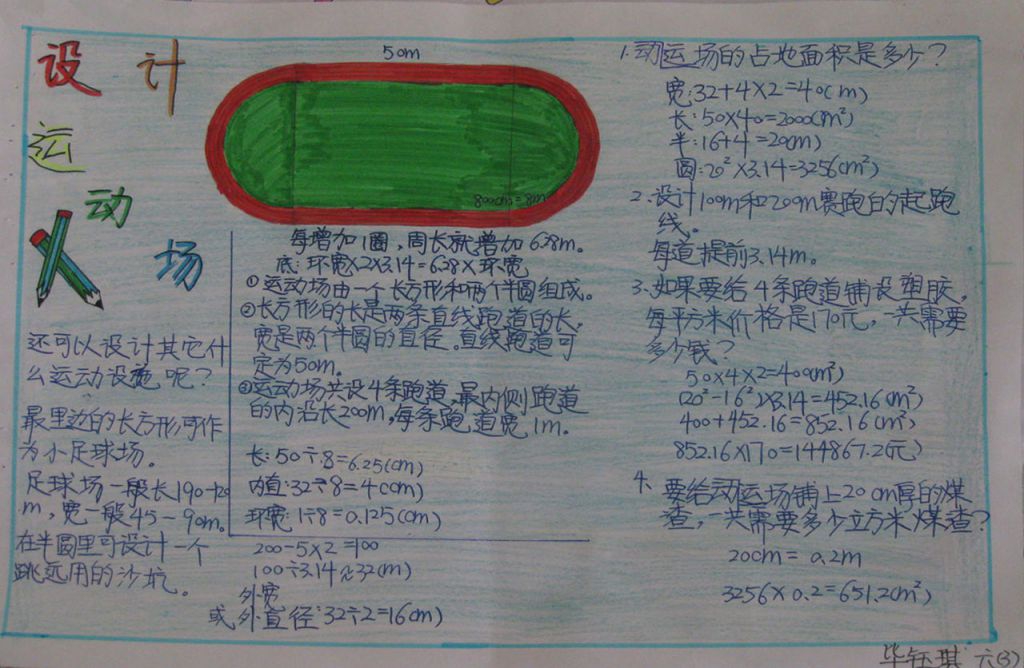 设 计
运
动
场
50m
800cm=8m
每增加1圈，周长就增加6.28m。
底:环宽×2×3.14=6.28×环宽
①运动场由一个长方形和两个半圆组成。
②长方形的长是两条直线跑道的长，
宽是两个半圆的直径。直线跑道可
定为50m。
③运动场共设4条跑道，最内侧跑道
的内沿长200m，每条跑道宽1m。
长:50÷8=6.25(cm)
内直:32÷8=4(cm)
环宽:1÷8=0.125(cm)
200-5×2=100
100÷3.14≈32(m)
外宽
或外直径:32÷2=16(m)
还可以设计其它什
么运动设施呢？
最里边的长方形可作
为小足球场。
足球场一般长190+120
m，宽一般45-90m。
在半圆里可设计一个
跳远用的沙坑。
1.动运场的占地面积是多少？
宽:32+4×2=40(m)
长:50×40=2000(m²)
半:16+4=20(m)
圆:20²×3.14=3256(m²)
2.设计100m和200m赛跑的起跑
线。
每道提前3.14m。
3.如果要给4条跑道铺设塑胶，
每平方米价格是170元，一共需要
多少钱？
50×4×2=400(m²)
(20²-16²)×3.14=452.16(m²)
400+452.16=852.16(m²)
852.16×170=144867.2(元)
4.要给动运场铺上20cm厚的煤
渣，一共需要多少立方米煤渣？
20cm=0.2m
3256×0.2=651.2(m³)
毕钰琪 六(3)